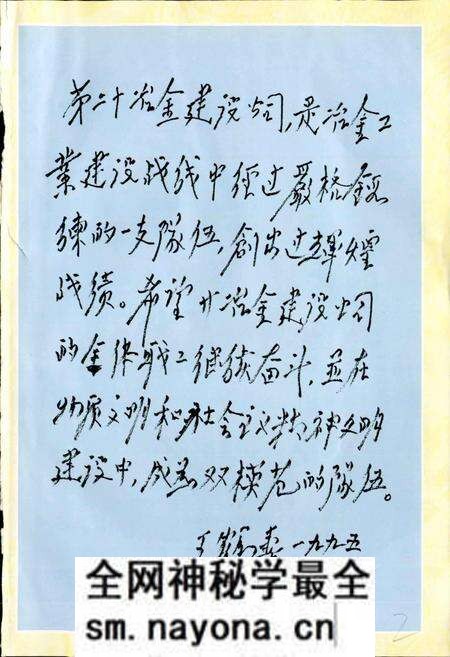 第二十冶金建设公司，是冶金工
業建设战线中经过嚴格鍛
練的一支隊伍，創出过辉煌
战绩。希望廿冶金建设公司
的全体职工继续奋斗，并在
物质文明和社会主义精神文明
建设中，成为双模范的隊伍。
王 一九九五
全网神秘学最全
sm.nayona.cn
2